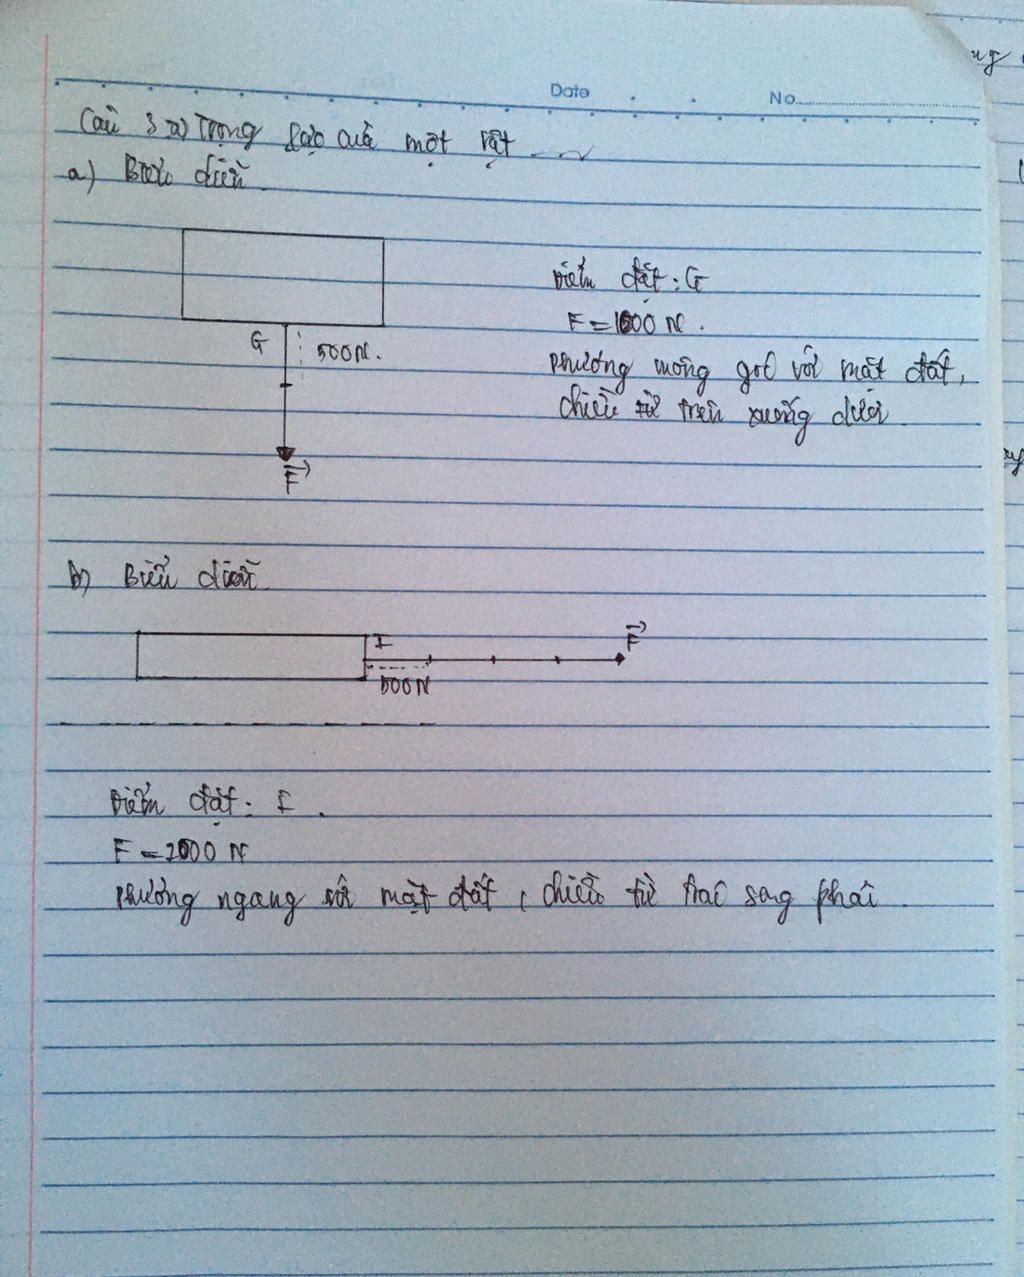 Date No
Câu 3 a) Trọng lực của một vật
a) Biểu diễn
Điểm đặt: G
F = 1000 N.
G
500N.
phương vuông góc với mặt đất,
chiều từ trên xuống dưới
F
b) Biểu diễn
I
F
500N
Điểm đặt: I.
F = 2000 N
phương ngang với mặt đất, chiều từ trái sang phải.